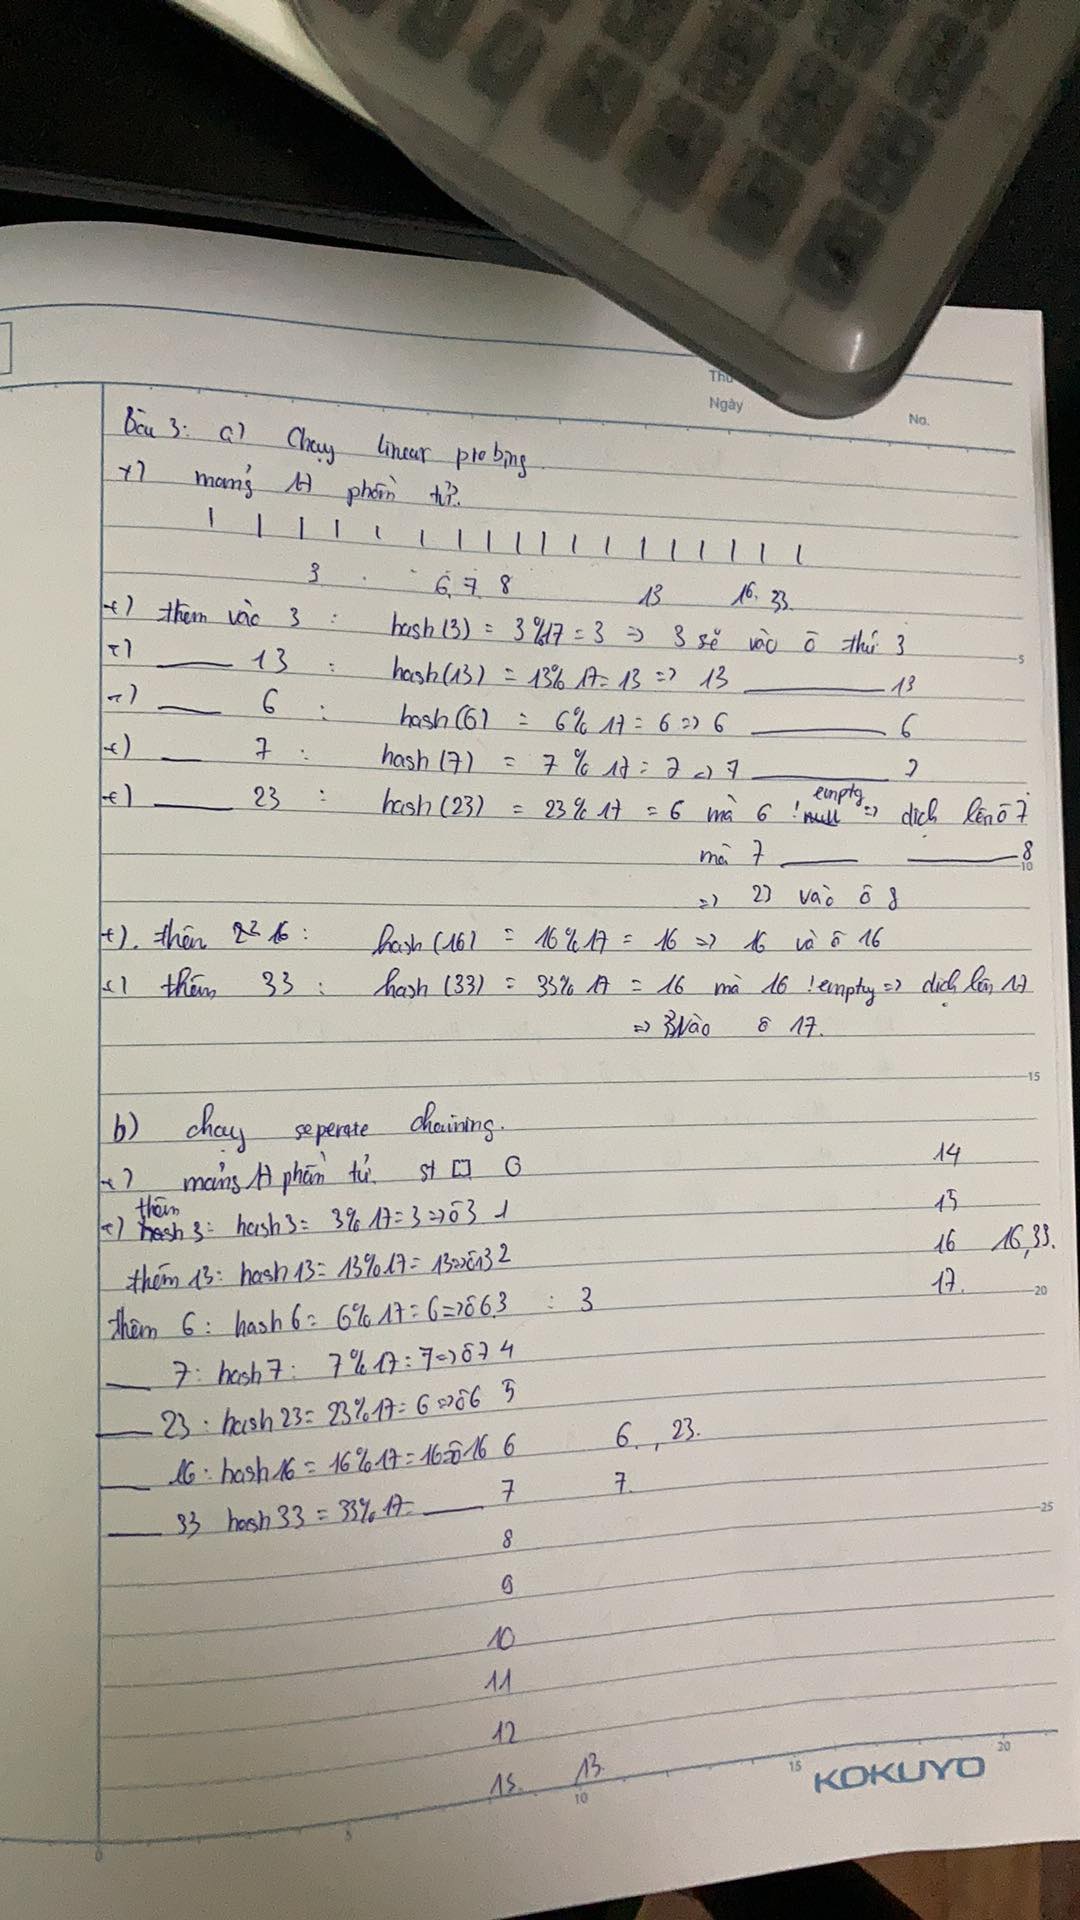 Thứ
Ngày
No.
Bài 3: a) Chạy linear probing
+) mảng 17 phần tử.
3 6, 7, 8 13 16, 33
+) thêm vào 3 : hash(3) = 3%17 = 3 => 3 sẽ vào ô thứ 3
+) ___ 13 : hash(13) = 13% 17 = 13 => 13 ___ 13
+) ___ 6 : hash(6) = 6% 17 = 6 => 6 ___ 6
+) ___ 7 : hash(7) = 7 % 17 = 7 => 7 ___ 7
+) ___ 23 : hash(23) = 23% 17 = 6 mà 6 !empty => dịch lên ô 7
mà 7 ___ ___ 8
=> 23 vào ô 8
+). thêm 16 : hash(16) = 16%17 = 16 => 16 và ô 16
+) thêm 33 : hash(33) = 33% 17 = 16 mà 16 !empty => dịch lên 17
=> 33 vào ô 17.
b) chạy seperate chaining.
+) mảng 17 phần tử. st [] 0 14
+) thêm 3: hash 3 = 3% 17 = 3 => ô 3 1 15
thêm 13: hash 13 = 13%17 = 13 => ô 13 2 16 16, 33.
thêm 6 : hash 6 = 6% 17 = 6 => ô 6 3 : 3 17.
___ 7: hash 7: 7% 17 = 7 => ô 7 4
___ 23 : hash 23 = 23%17 = 6 => ô 6 5
___ 16 : hash 16 = 16%17 = 16 => ô 16 6 6, 23.
___ 33 hash 33 = 33% 17 = ___ 7 7.
8
9
10
11
12
13. 13.
KOKUYO
0 5 10 15 20
5
10
15
20
25